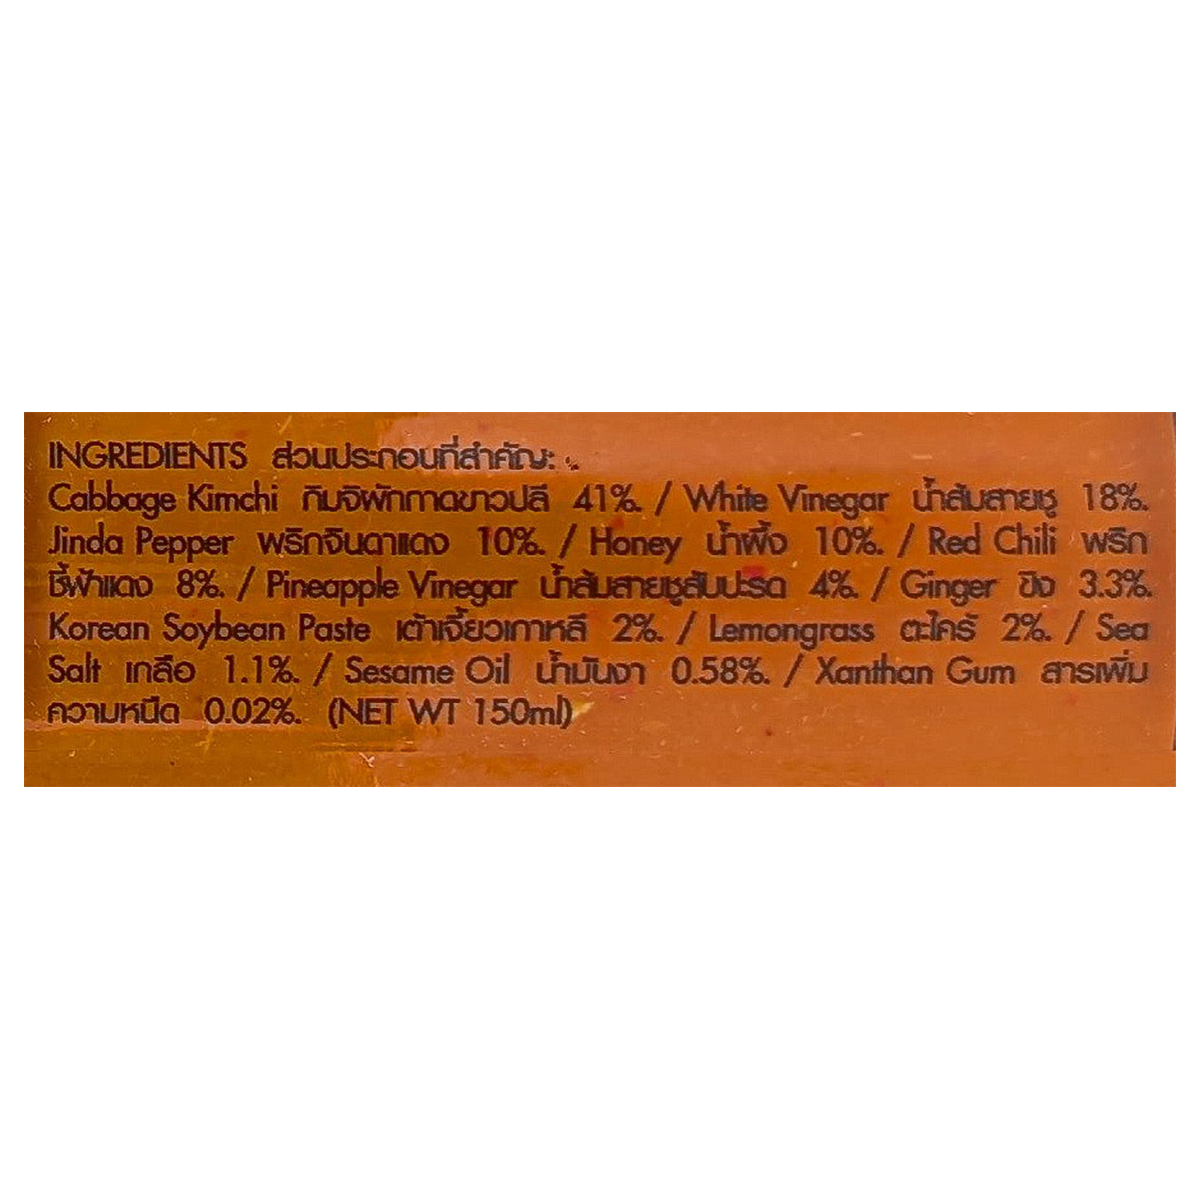 INGREDIENTS ส่วนประกอบที่สำคัญ:
Cabbage Kimchi กิมจิผักกาดขาวปลี 41%. / White Vinegar น้ำส้มสายชู 18%.
Jinda Pepper พริกจินดาแดง 10%. / Honey น้ำผึ้ง 10%. / Red Chili พริก
ชี้ฟ้าแดง 8%. / Pineapple Vinegar น้ำส้มสายชูสับปะรด 4%. / Ginger ขิง 3.3%.
Korean Soybean Paste เต้าเจี้ยวเกาหลี 2%. / Lemongrass ตะไคร้ 2%. / Sea
Salt เกลือ 1.1%. / Sesame Oil น้ำมันงา 0.58%. / Xanthan Gum สารเพิ่ม
ความหนืด 0.02%. (NET WT 150ml)